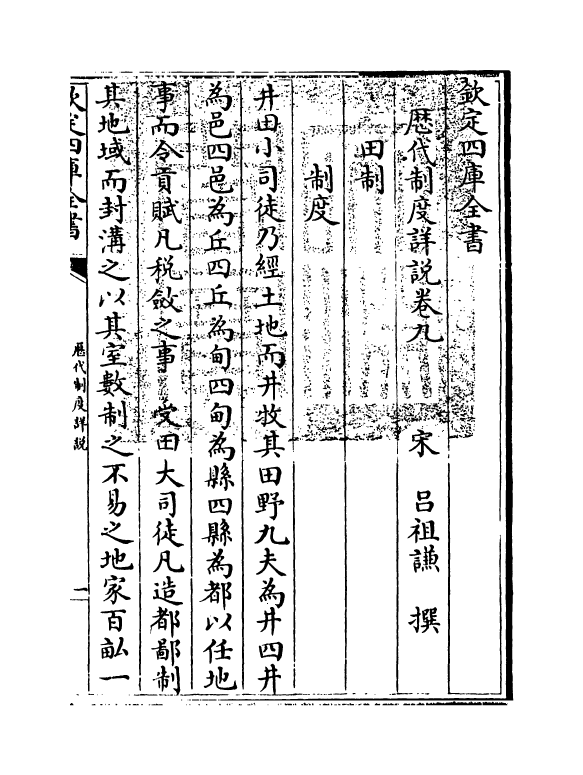 欽定四庫全書
歷代制度詳說卷九　宋　呂祖謙　撰
田制
制度
井田小司徒乃經土地而井牧其田野九夫為井四井
為邑四邑為丘四丘為甸四甸為縣四縣為都以任地
事而令貢賦凡稅斂之事　受田大司徒凡造都鄙制
其地域而封溝之以其室數制之不易之地家百畝一
欽定四庫全書
歷代制度詳説
一